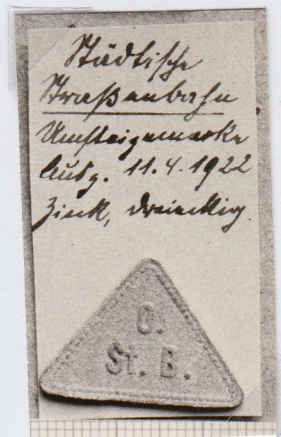 Städtische
Straßenbahn
Umsteigemarke
Ausg. 11.4.1922
Zink, dreieckig.
O.
St. B.